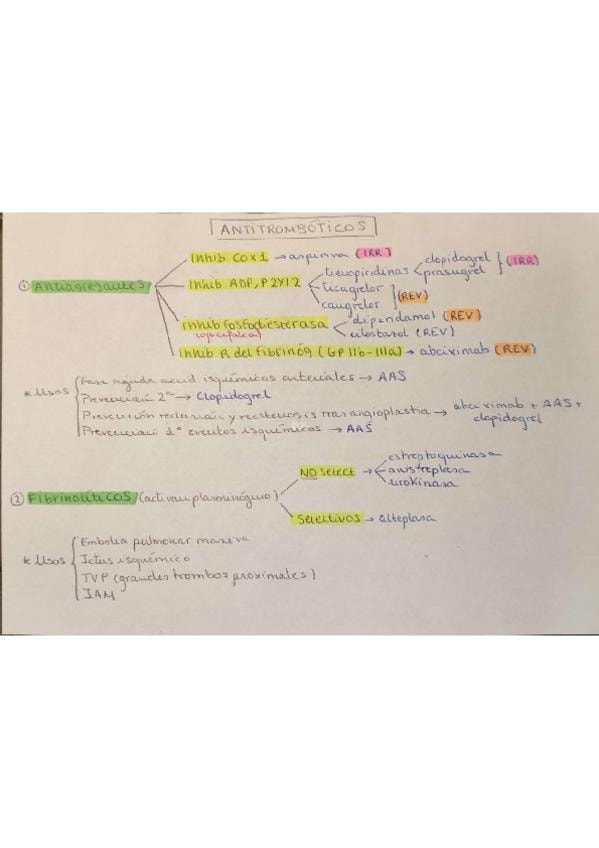 ANTITROMBÓTICOS
Inhib. COX 1 → aspirina (IRR)
① Antiagregantes
Inhib. ADP, P2Y12
tienopiridinas
clopidogrel
prasugrel
(IRR)
ticagrelor
caugrelor
(REV)
inhib fosfodiesterasa
(ojo cefalea)
dipiridamol (REV)
cilostazol (REV)
Inhib R del fibrinóg (GP IIb-IIIa) → abciximab (REV)
* Usos
Fase aguda accid isquémicos arteriales → AAS
Prevención 2ª → Clopidogrel
Prevención reclusión y reestenosis tras angioplastia → abciximab + AAS + clopidogrel
Prevención 1ª eventos isquémicos → AAS
② Fibrinolíticos (activan plasminógeno)
NO select →
estreptoquinasa
anistreplasa
urokinasa
Selectivos → alteplasa
* Usos
Embolia pulmonar masiva
Ictus isquémico
TVP (grandes trombos proximales)
IAM